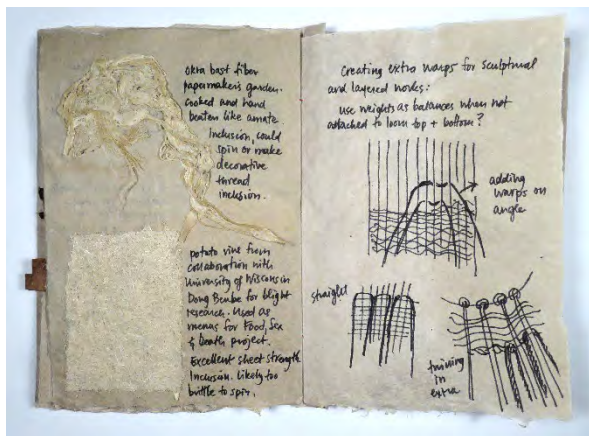 Okra bast fiber
papermaker's garden.
Cooked and hand
beaten like amate
Inclusion, could
spin or make
decorative
thread
inclusion.
potato vine from
collaboration with
University of Wisconsin
Doug for blight
research. Used as
menus for Food, Sex
& Death project.
Excellent sheet strength
Inclusion. Likely too
brittle to spin.
Creating extra warps for sculptural
and layered works:
use weights as balances when not
attached to loom top + bottom?
adding
warps on
angle
straight
twining
in
extra